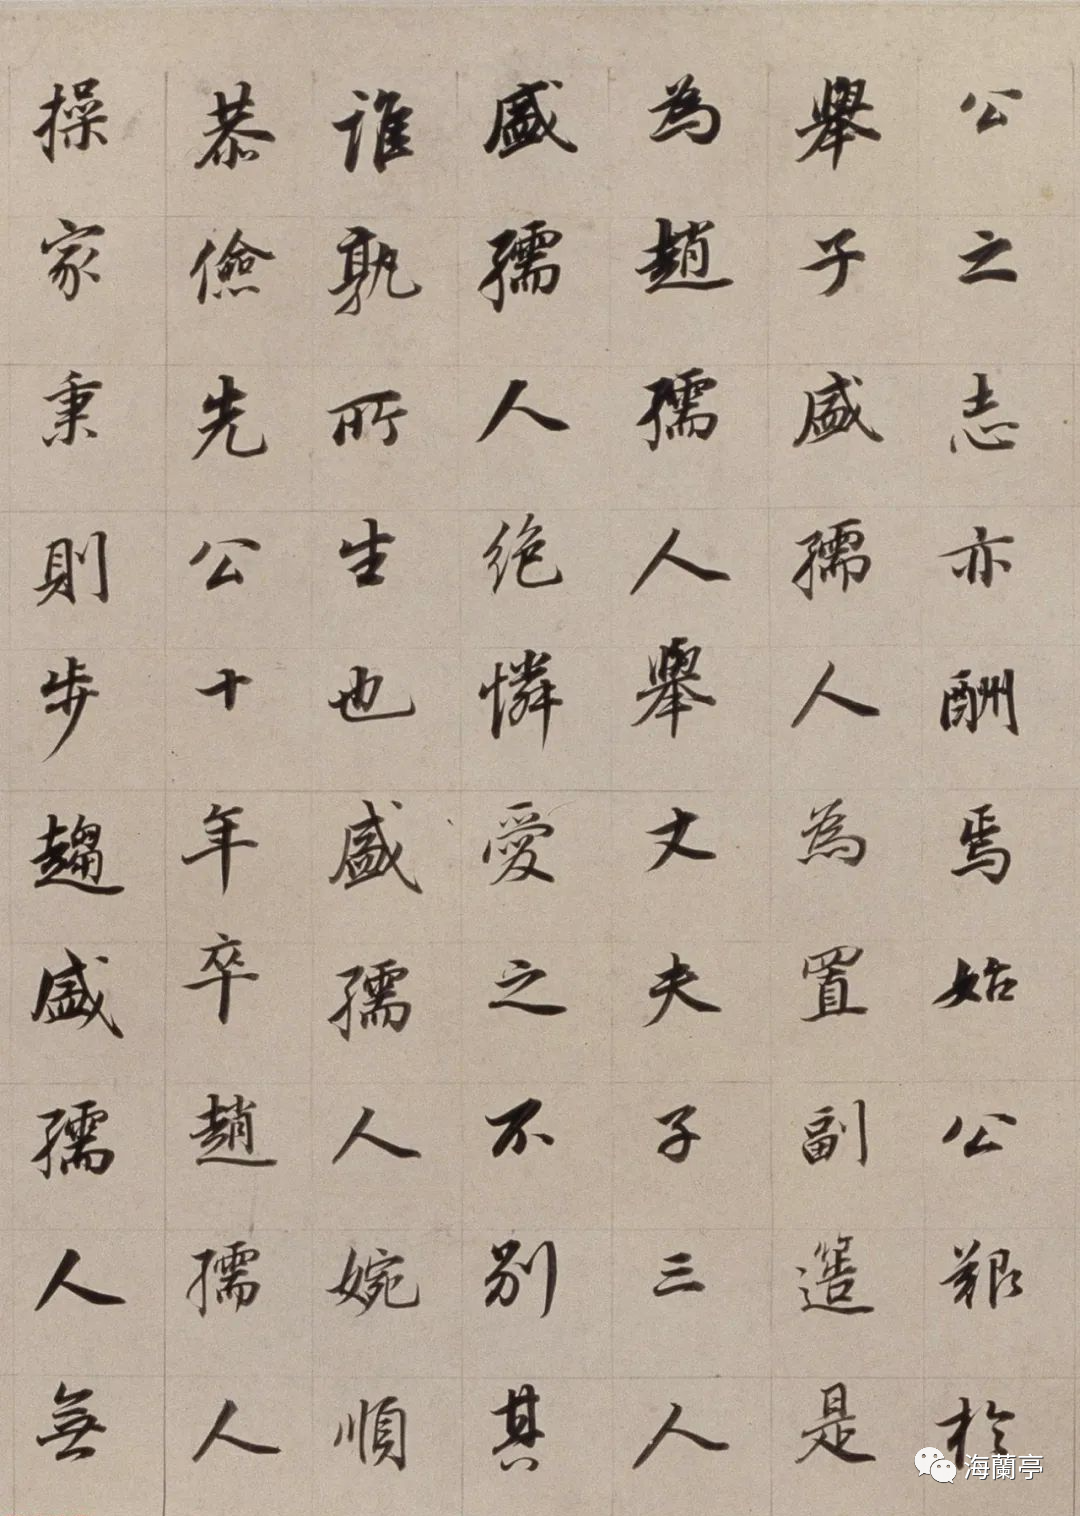 公之志亦酬焉始公艱於
舉子盛孺人為置副簉是
為趙孺人舉丈夫子三人
盛孺人絕憐愛之不別其
誰孰所生也盛孺人婉順
恭儉先公十年卒趙孺人
操家秉則步趨盛孺人無
海蘭亭